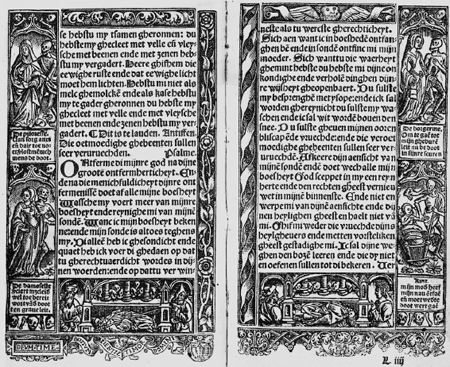 se hebstu my tsamen gheronnen: du
hebstmy ghecleet met velle eñ vley-
sche met beenen ende met zenen hebs-
tu my vergadert. Heere ghifthem die
eewighe ruste ende dat eewighe licht
moet hem lichten. Hebstu mi niet als
melc ghemolckẽ ende als kase hebstu
my te gader gheronnen du hebste my
ghecleet met velle ende met vleysche
met beenen ende zenen hebstu my ver-
gadert. Dit is te lauden. Antiffen.
Die oetmoedige gheb eenten sullen
seer vervruechden. Psalme.
Ontfermt di mijnre god na dijne
groote ontfermherticheyt. En-
de na die menichfuldicheyt dijnre ont-
fermenisse doet af alle mijne boosheyt
Wassche my voert meer van mijnre
boosheyt ende reynicht my van mijnre
sonde. Want ic mijn boosheyt beken-
ne ende mijn sonde is altoos teghens
my. Di alleẽ heb ic ghesondicht ende
quaet heb ick voer di ghedaen op dat
tu gherechtuerdicht wordes in dij-
nen woerden: ende op dattu verwin-
De damoyselle
neste als tu werctste gherechticheyt.
Sich aen want ic in boosheden ontfan-
ghen bẽ ende in sonde ontfinc mi mijn
moeder. Sich want tu die waerheyt
ghemint hebste du hebste mi dijne on-
kondighe ende verholẽ dinghen dijn-
re wijsheyt gheopenbaert. Du sulste
my besprenghẽ met ysope: ende ic sal
worden ghereynicht du sulste my was-
schen ende ic sal wit wordẽ bouen den
snee. Du sulste gheuen mijnen ooren
bliscap ende vruechde ende die veroot-
moedighe ghebeenten sullen seer ver-
vruechdẽ. Afkeere dijn aensicht van
mijnen sonden ende doet wech alle mijn
boosheyt God scept in my een reyn
herte ende den rechten gheest vernieut
wet in mijne binnenste. Ende niet en
werpe mi van dijnẽ aensichte ende dij-
nen heylighen gheest en haelt niet vã
mi. Ghif mi weder die vruechde dijns
heyligheuers ende metten vorsteliken
gheest gestadighe mi. Ic sal dijne we-
ghen den bozẽ leeren ende die dy niet
en oefenen sullen tot di bekeren. Ver-
L iiij